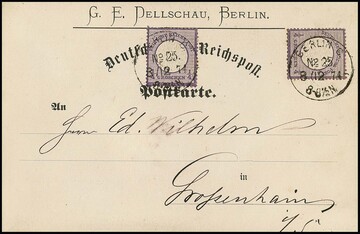 G. E. Dellschau, Berlin.
Deutsche Reichspost.
BERLIN
No 25.
8-9 N.
BERLIN
No 25
8 12 74
8-9 N.
Postkarte.
An
Herrn Ed. Wilhelm
in
Grossenhain
i/S